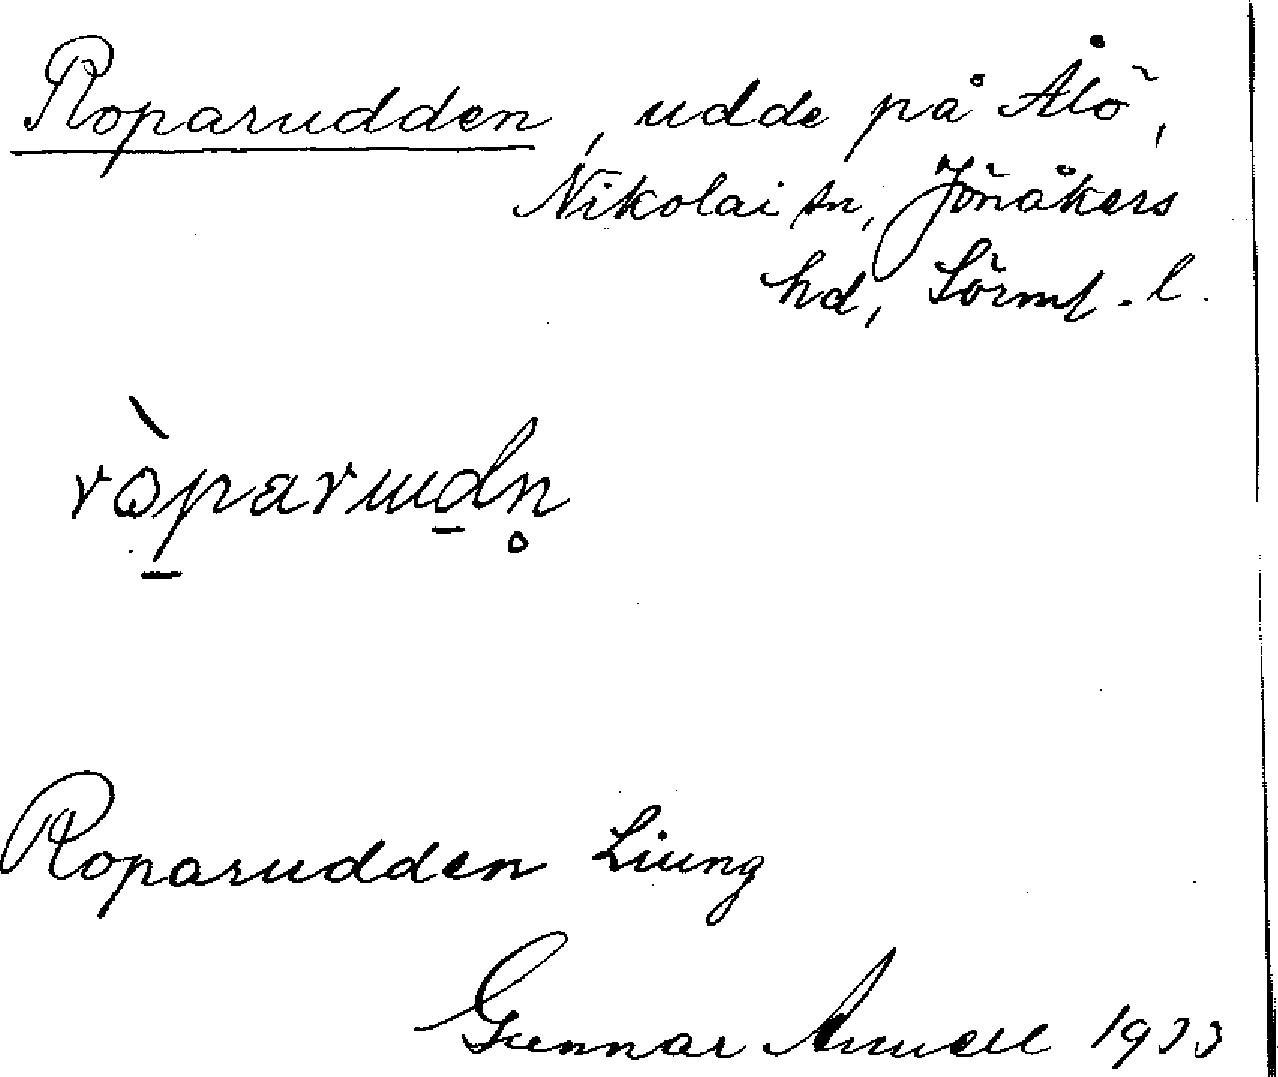 Roparudden, udde på Ålö,
Nikolai sn, Jönåkers
hd, Sörml. l.
ròparudn̥
Roparudden Liung
Gunnar 1933